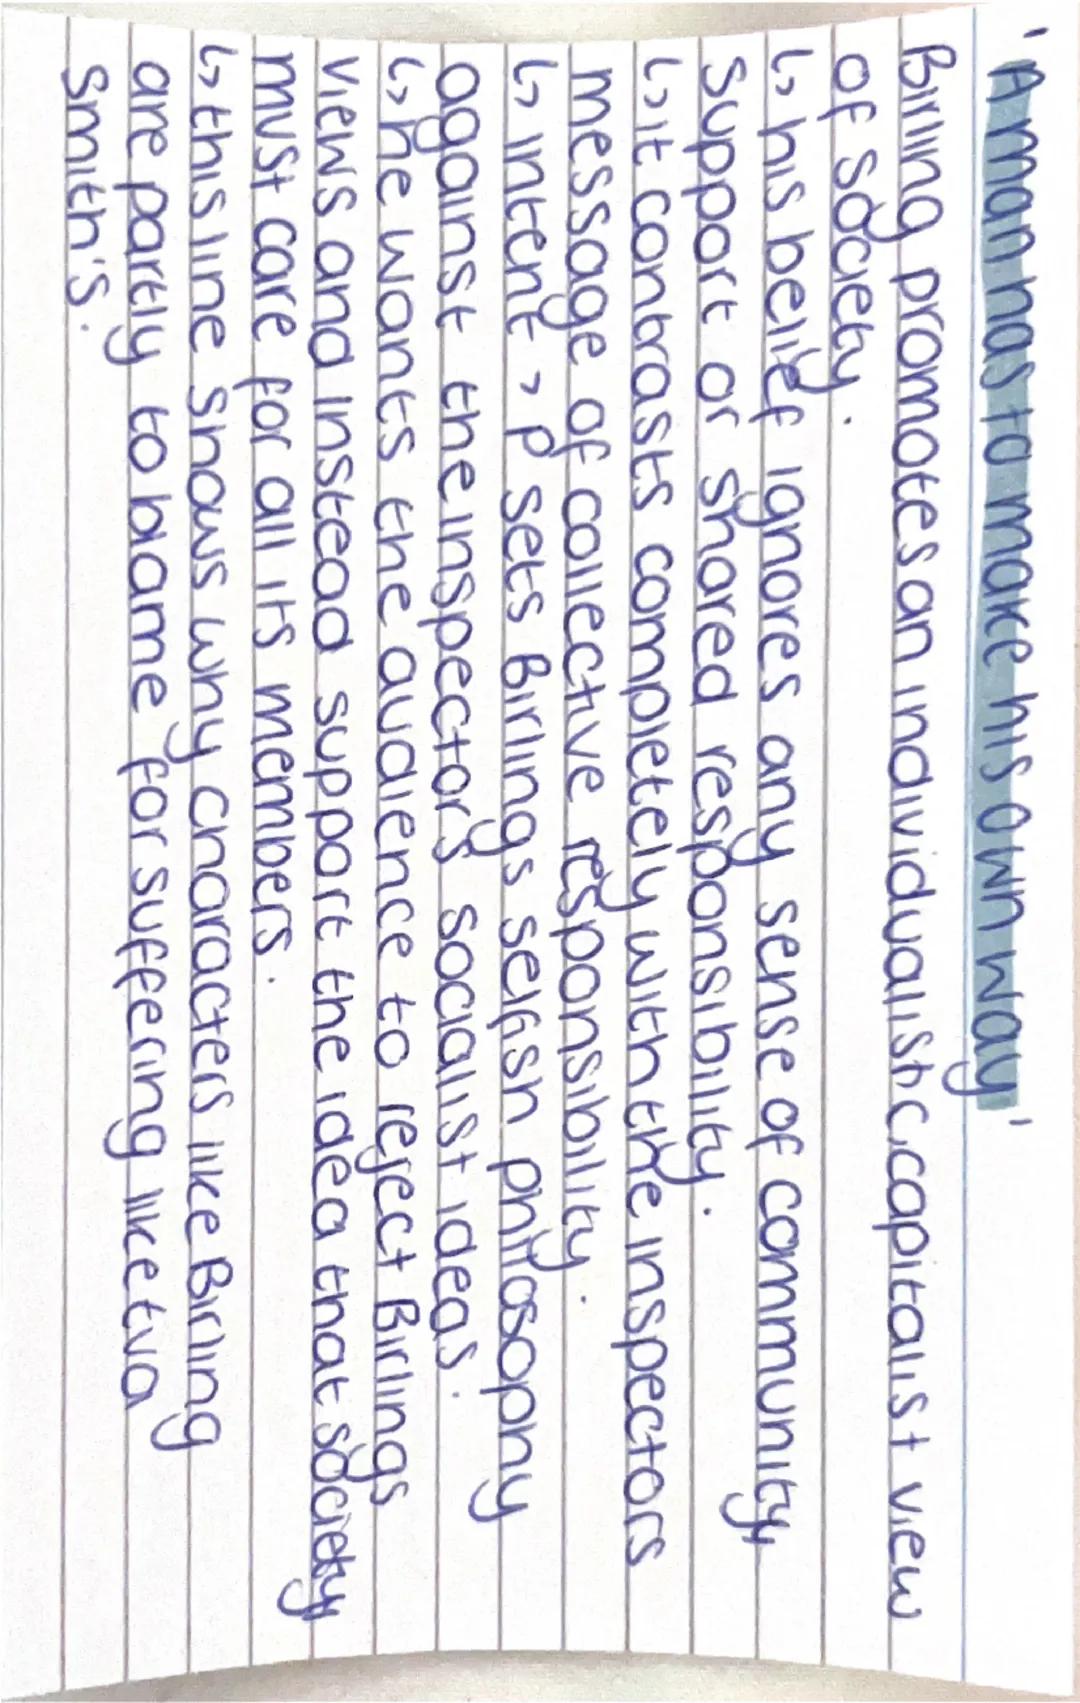 'A man has to make his own way'
Birling promotes an individualistic, capitalist view
of society.
↳ his belief ignores any sense of community,
support or shared responsibility.
↳ it contrasts completely with the inspectors
message of collective responsibility.
↳ intent > P sets Birlings selfish philosophy
against the inspectors socialist ideas.
↳ he wants the audience to reject Birlings
views and instead support the idea that society
must care for all its members.
↳ this line shows why characters like Birling
are partly to blame for suffering like Eva
Smith's.